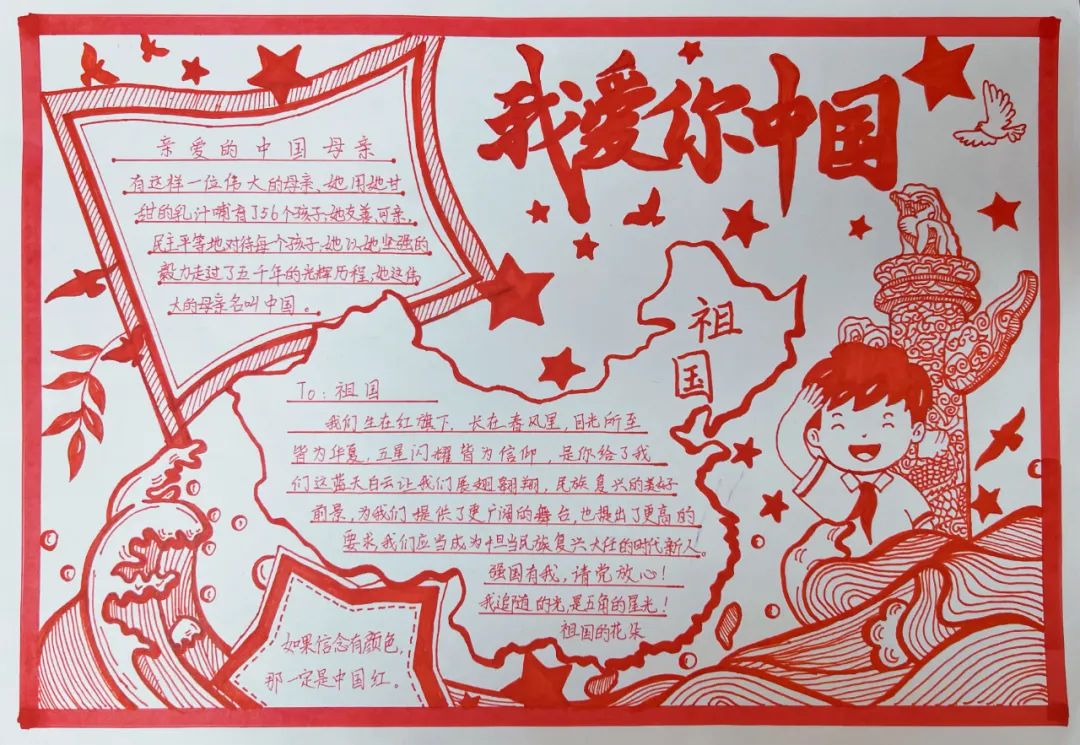 我爱你中国
亲爱的中国母亲
有这样一位伟大的母亲、她用她甘
甜的乳汁哺育了56个孩子、她友善、可亲、
民主平等地对待每个孩子、她以她坚强的
毅力走过了五千年的光辉历程、她这伟
大的母亲名叫中国。
祖
国
To：祖国
我们生在红旗下，长在春风里，目光所至
皆为华夏，五星闪耀皆为信仰，是你给了我
们这蓝天白云让我们展翅翱翔，民族复兴的美好
前景，为我们提供了更广阔的舞台，也提出了更高的
要求，我们应当成为担当民族复兴大任的时代新人。
强国有我，请党放心！
我追随的光，是五角的星光！
祖国的花朵
如果信念有颜色，
那一定是中国红。